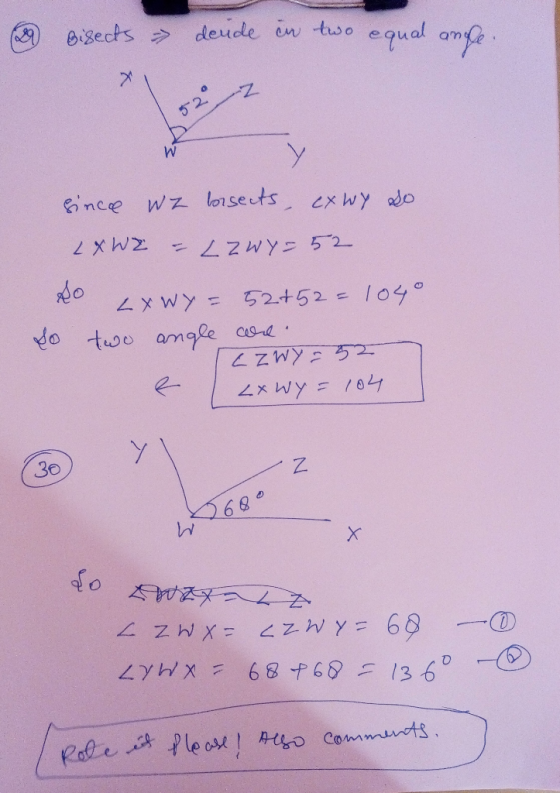 29 Bisects ⇒ devide in two equal angle.
X
52°
Z
W
Y
Since WZ bisects, ∠XWY so
∠XWZ = ∠ZWY = 52
So ∠XWY = 52+52 = 104°
So two angle are.
∠ZWY = 52
← ∠XWY = 104
30
Y
Z
68°
W
X
So ∠WZX = ∠Z
∠ZWX = ∠ZWY = 68 — 1
∠YWX = 68+68 = 136° — 2
Rate it Please! Also comments.